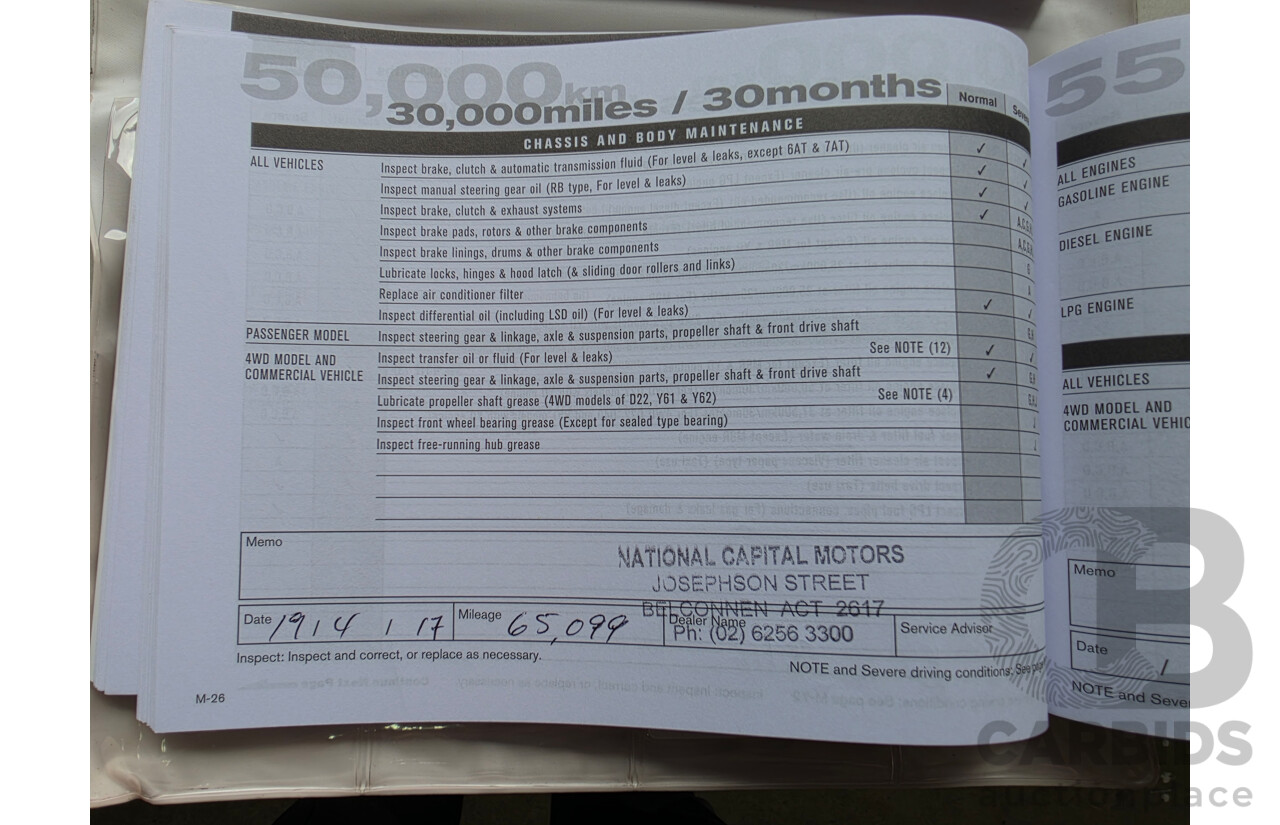 50,000km
30,000miles / 30months
Normal
CHASSIS AND BODY MAINTENANCE
ALL VEHICLES
Inspect brake, clutch & automatic transmission fluid (For level & leaks, except 6AT & 7AT) ✓ ✓
Inspect manual steering gear oil (RB type, For level & leaks) ✓ ✓
Inspect brake, clutch & exhaust systems ✓ ✓
Inspect brake pads, rotors & other brake components ✓
Inspect brake linings, drums & other brake components
Lubricate locks, hinges & hood latch (& sliding door rollers and links)
Replace air conditioner filter
Inspect differential oil (including LSD oil) (For level & leaks) ✓ ✓
PASSENGER MODEL
Inspect steering gear & linkage, axle & suspension parts, propeller shaft & front drive shaft
4WD MODEL AND COMMERCIAL VEHICLE
Inspect transfer oil or fluid (For level & leaks) See NOTE (12) ✓ ✓
Inspect steering gear & linkage, axle & suspension parts, propeller shaft & front drive shaft ✓
Lubricate propeller shaft grease (4WD models of D22, Y61 & Y62) See NOTE (4)
Inspect front wheel bearing grease (Except for sealed type bearing)
Inspect free-running hub grease
Memo
NATIONAL CAPITAL MOTORS
JOSEPHSON STREET
BELCONNEN ACT 2617
Ph: (02) 6256 3300
Date 19 / 4 / 17 Mileage 65,099 Dealer Name Service Advisor
Inspect: Inspect and correct, or replace as necessary.
NOTE and Severe driving conditions: See
M-26
55
ALL ENGINES
GASOLINE ENGINE
DIESEL ENGINE
LPG ENGINE
ALL VEHICLES
4WD MODEL AND
COMMERCIAL VEHIC
Memo
Date /
NOTE and Seve
CARBIDS
auctionplace